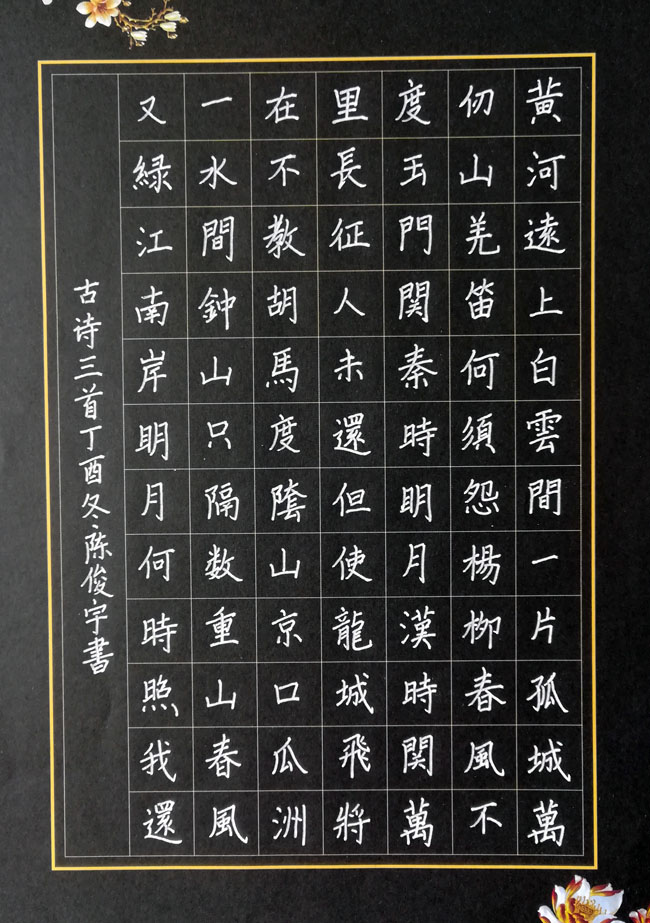 黄河遠上白雲間一片孤城萬
仞山羌笛何須怨楊柳春風不
度玉門関秦時明月漢時関萬
里長征人未還但使龍城飛將
在不教胡馬度陰山京口瓜洲
一水間鈡山只隔数重山春風
又緑江南岸明月何時照我還
古诗三首丁酉冬陈俊宇書